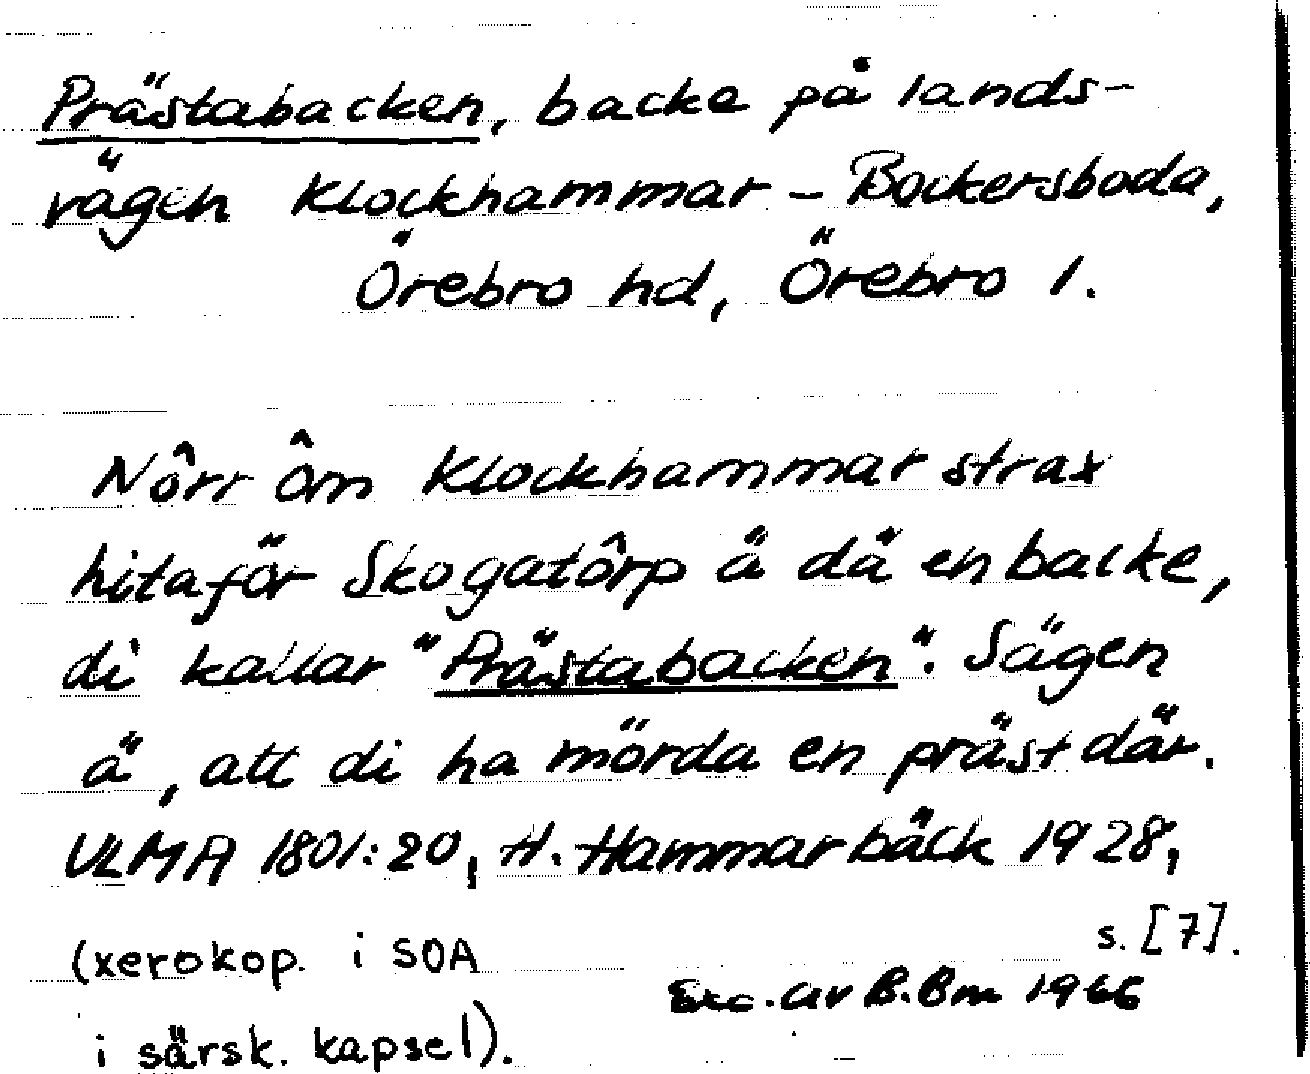 Prästabacken, backe på lands-
vägen Klockhammar - Bockersboda,
Örebro hd, Örebro l.
Nôrr ôm Klockhammar strax
hitaför Skogatôrp ä dä en backe,
di kallar "Prästabacken". Sägen
ä, att di ha mörda en präst där.
ULMA 1801:20, H. Hammarbäck 1928,
s. [7].
(xerokop. i SOA
i särsk. kapsel).
Exc. av B.Bm 1966